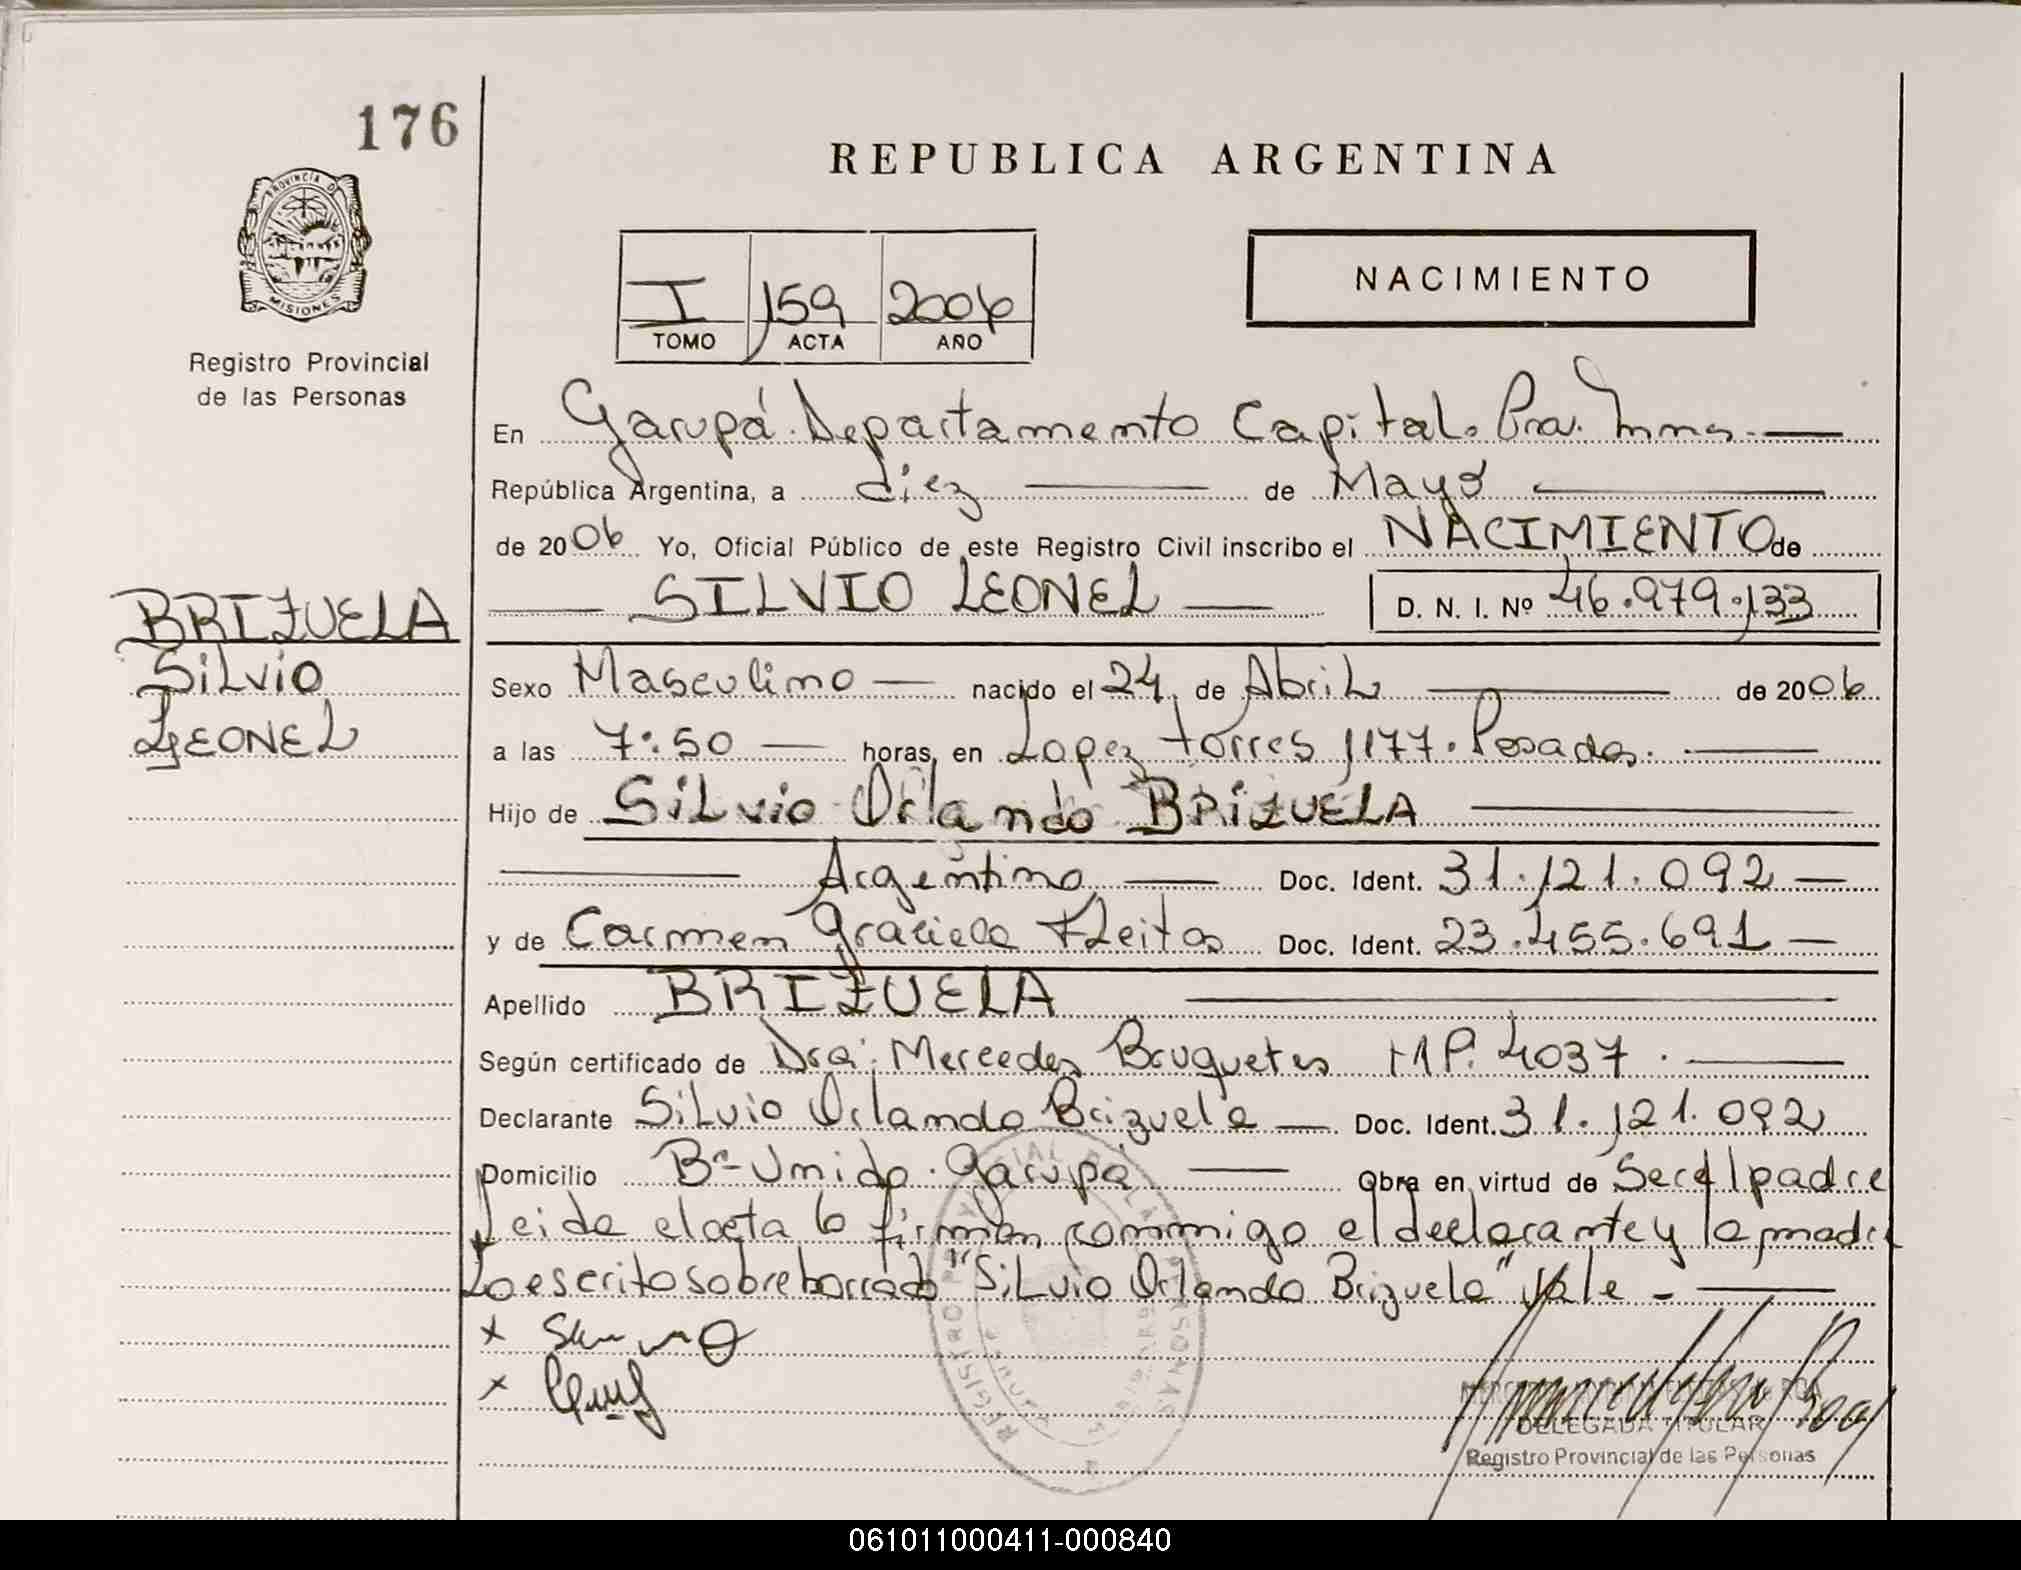 176
REPUBLICA ARGENTINA
PROVINCIA DE
MISIONES
Registro Provincial
de las Personas
I 159 2006
TOMO ACTA AÑO
NACIMIENTO
En Garupá. Departamento Capital. Pva. Mnes.
República Argentina, a diez de Mayo
de 2006 Yo, Oficial Público de este Registro Civil inscribo el NACIMIENTO de
SILVIO LEONEL D. N. I. Nº 46.979.133
BRIZUELA
Silvio
LEONEL
Sexo Masculino nacido el 24 de Abril de 2006
a las 7:50 horas, en Lopez torres 1177. Posadas.
Hijo de Silvio Orlando BRIZUELA
Argentino Doc. Ident. 31.121.092
y de Carmen Graciela Fleitas Doc. Ident. 23.455.691
Apellido BRIZUELA
Según certificado de Dra. Mercedes Bruguetes MP. 4037.
Declarante Silvio Orlando Brizuela Doc. Ident. 31.121.092
Domicilio Bº Unido. Garupá Obra en virtud de Ser el padre
Leida el acta la firman conmigo el declarante y la madre
Lo escrito sobre borrado "Silvio Orlando Brizuela" Vale -
x
x
DELEGADA TITULAR
Registro Provincial de las Personas
061011000411-000840